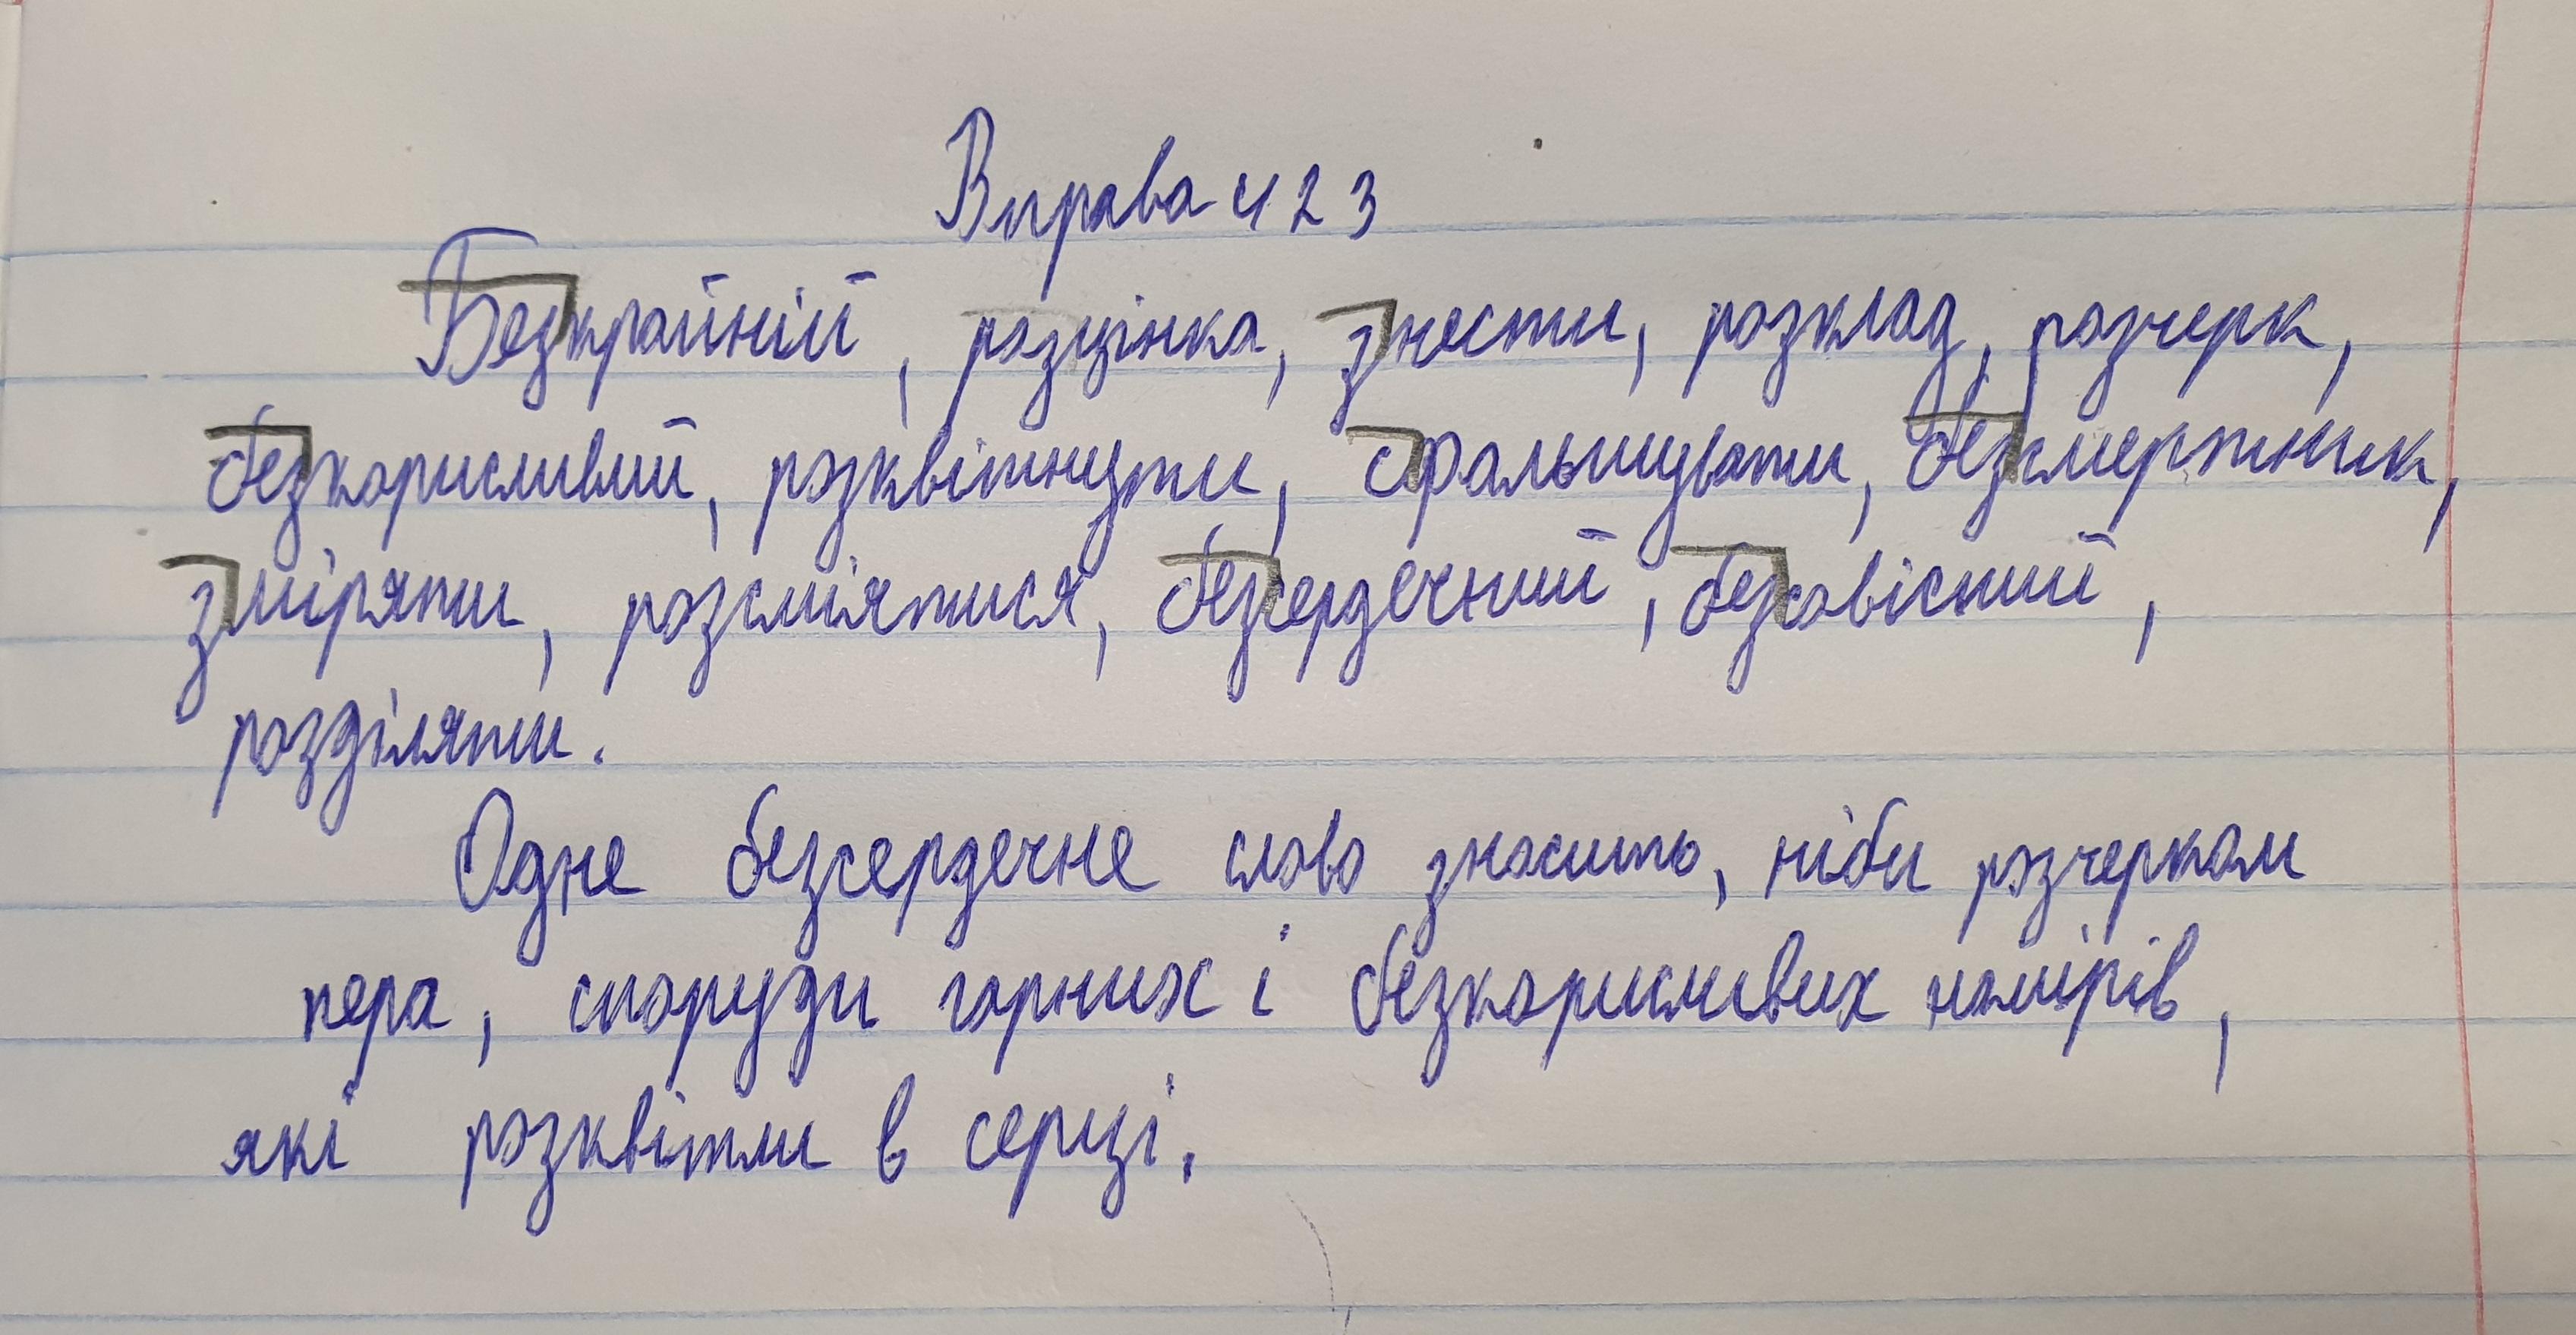 Вправа 423
Безкрайній, розцінка, знести, розклад, розчерк,
безкорисливий, розквітнути, сфальшувати, безсмертник,
зміряти, розсміятися, безсердечний, безсовісний,
розділяти.
Одне безсердечне слово зносить, ніби розчерком
пера, споруди гарних і безкорисливих намірів,
які розквітли в серці.